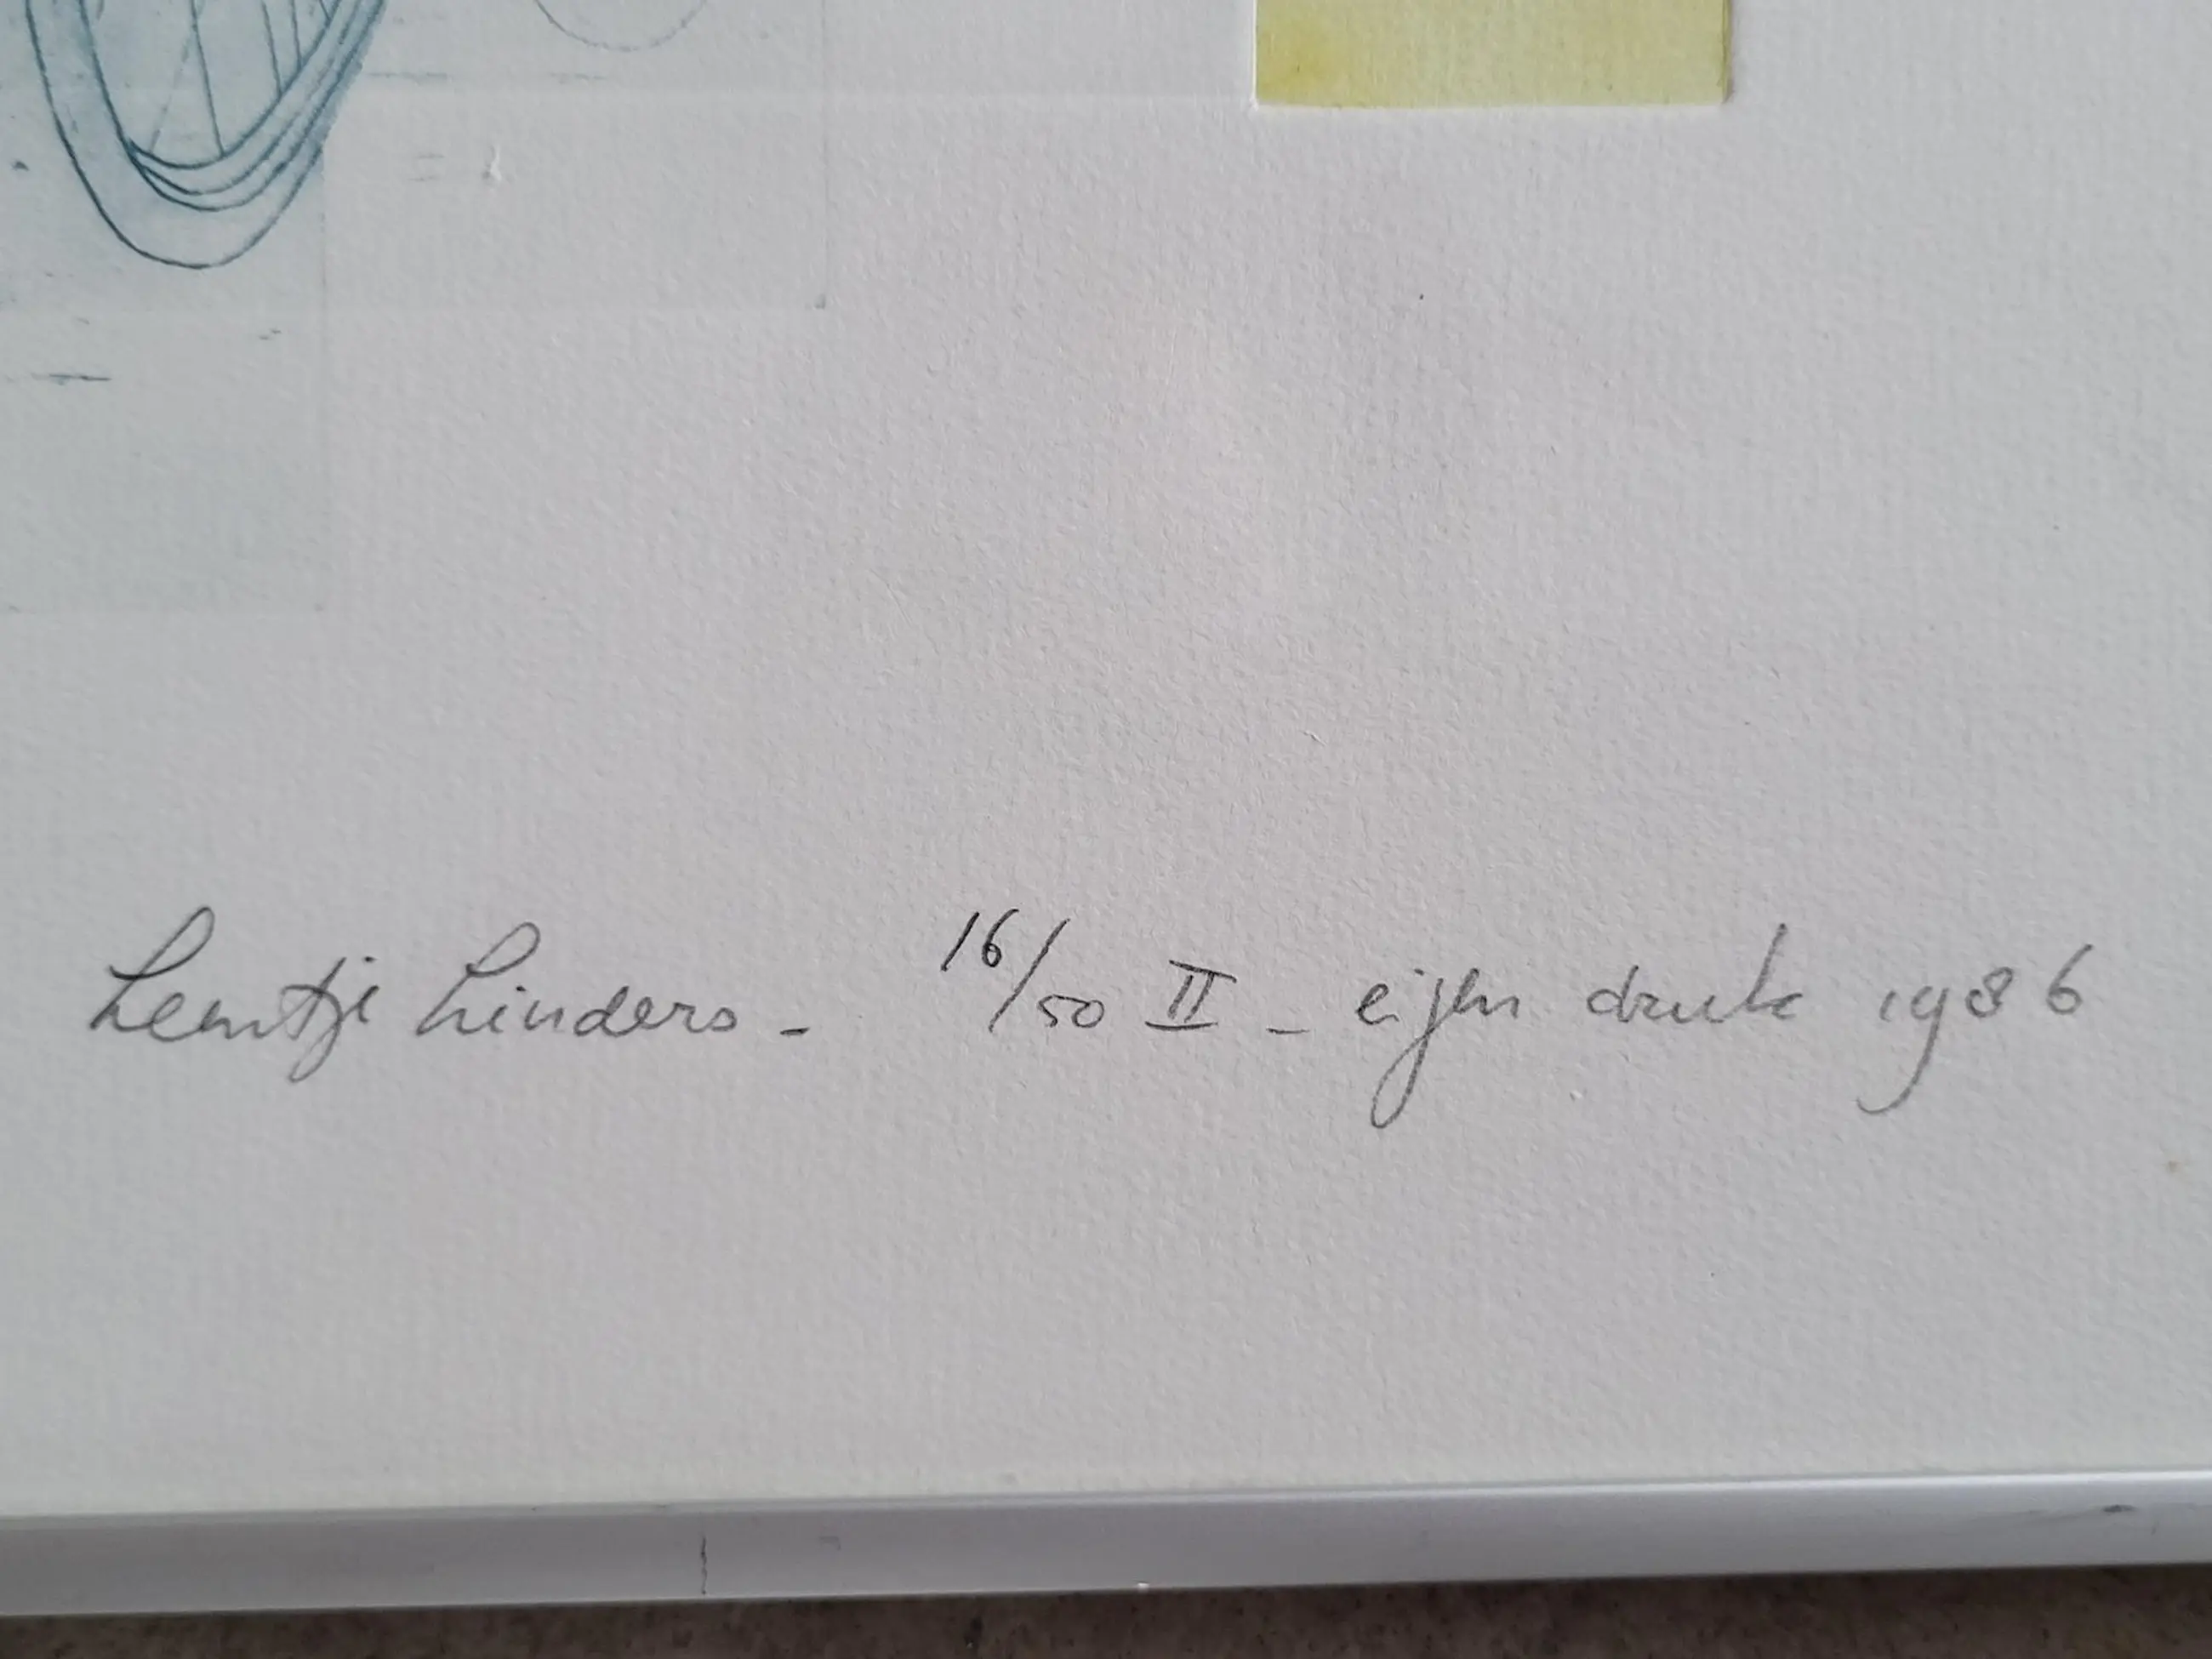 Leentje Linders - 16/50 II - eigen druk 1986